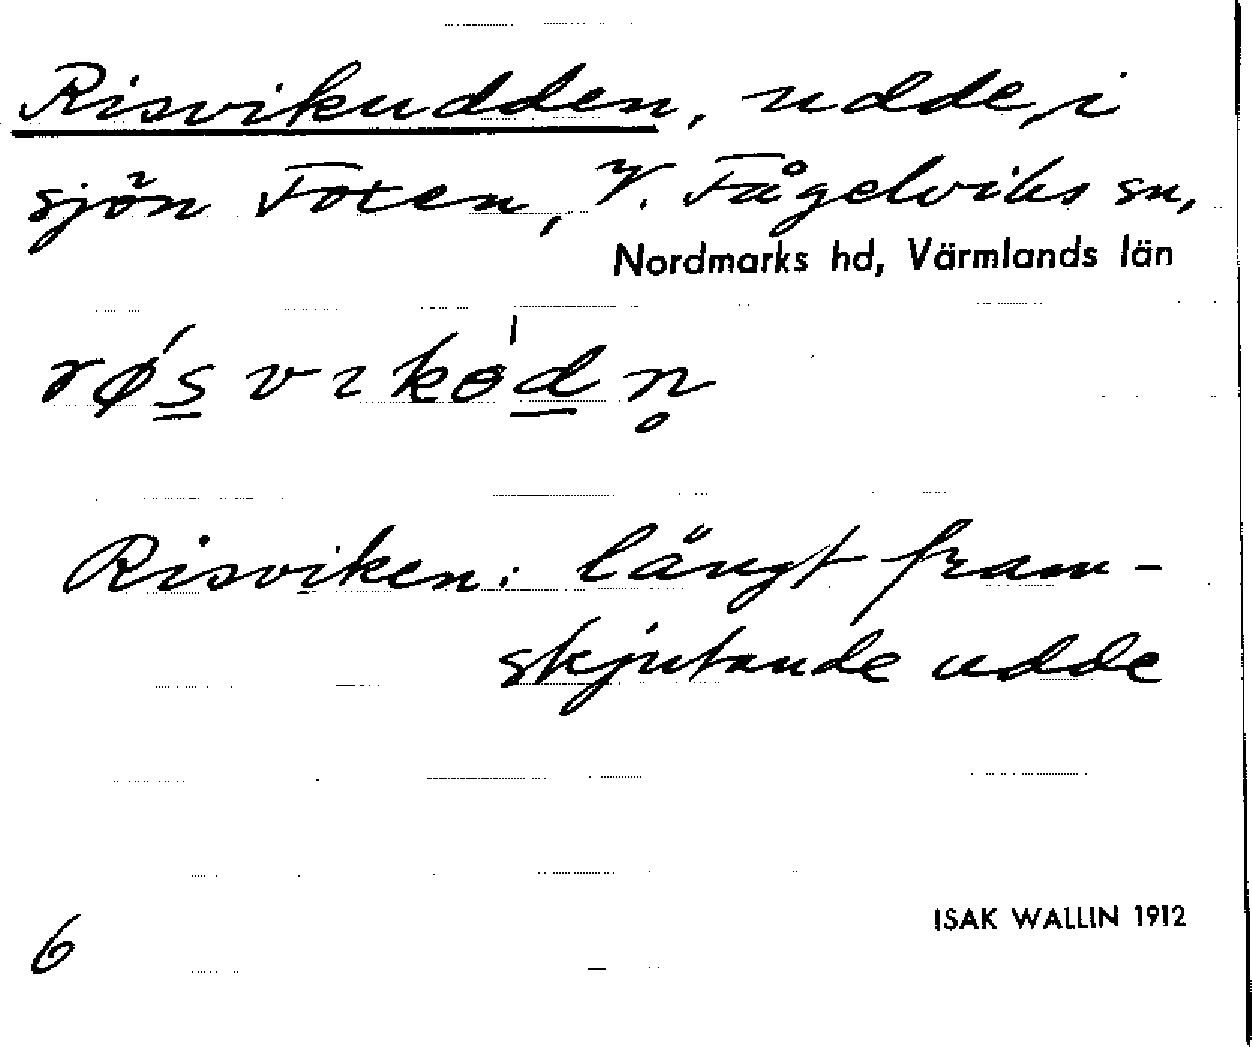 Risvikudden, udde, i
sjön Foxen, V. Fågelviks sn,
Nordmarks hd, Värmlands län
Risviken: långt fram-
skjutande udde
ISAK WALLIN 1912
6